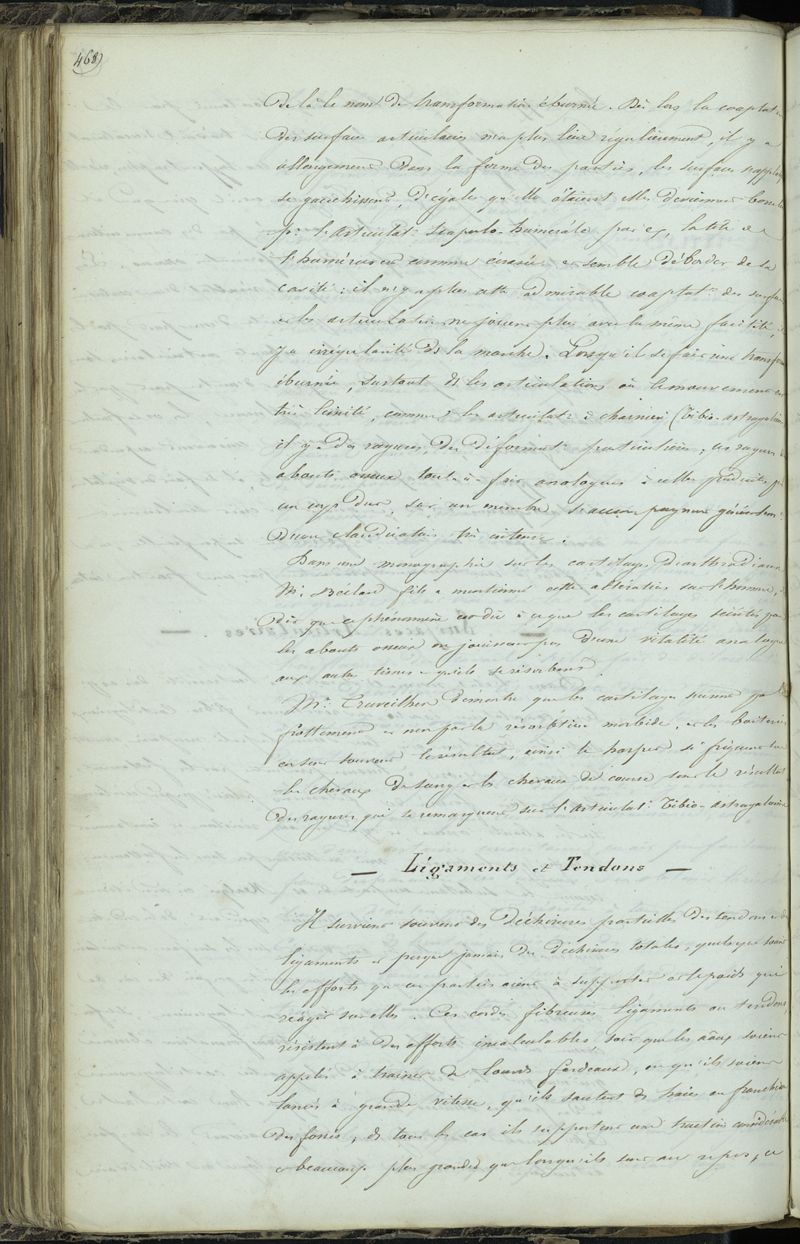 468)
De là le nom de transformation éburnée. Dès lors la coaptat.
des surfaces articulaires n'a plus lieu régulièrement, il y a
allongement dans la forme des parties, les surfaces
se gauchissent, d'égales qu'elles étaient elles deviennent
pr l'articulat. scapulo-humérale par ex, la tête de
l'humérus est comme écrasée et semble déborder de la
cavité : il n'y a plus cette admirable coaptat. des surfaces
et les articulations ne jouent plus avec la même facilité,
y a irrégularité ds la marche. Lorsqu'il se fait une transform
éburnée, surtout ds les articulations où le mouvement est
très limité, comme ds les articulat. à charnière (Tibio-astragalienne
il y a des rayures, des déformat. particulières, ces rayures
abouts osseux tout à fait analogues à celles produites par
un corps dur, sur un membre s'accompagnent généralem.
d'une claudication très intense.
Dans une monographie sur les cartilages diarthrodiaux
Mr. Béclard fils a mentionné cette altération sur l'homme,
dit que ce phénomène est dû à ce que les cartilages
les abouts osseux ne jouissent pas d'une vitalité analogue
aux autres tissus et qu'ils se résorbent.
Mr. Cruveilher démontre que les cartilages s'usent par
frottement et non par la résorbtion morbide, et les boiteries
en sont souvent le résultat, ainsi le harper si fréquent sur
les chevaux de sang et les chevaux de course sont le résultat
des rayures qui se remarquent sur l'articulat. Tibio-astragalienne
— Ligaments et Tendons —
Il survient souvent des déchirures partielles des tendons et des
ligaments et presque jamais des déchirures totales, quelque soient
les efforts que ces parties aient à supporter et le poids qui
réagit sur elles. Ces cordes fibreuses ligaments ou tendons,
résistent à des efforts incalculables, soit que les aaux soient
appelés à trainer de lourds fardeaux, ou qu'ils soient
lancés à grande vitesse, qu'ils sautent des haies ou franchissent
des fossés, ds tous les cas ils supportent une traction considérable
et beaucoup plus grande que lorsqu'ils sont au repos, ce